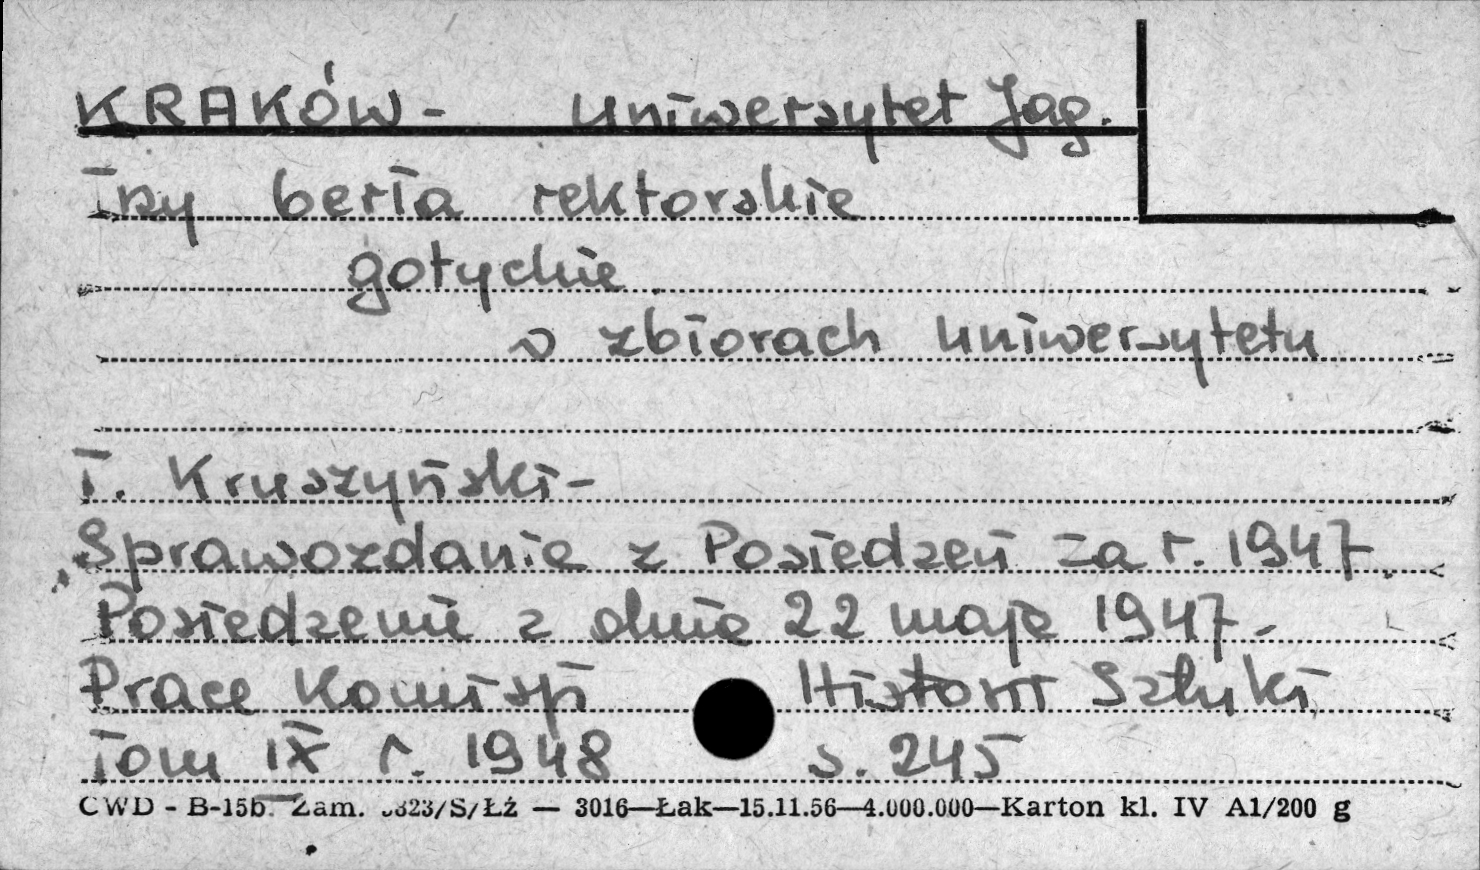 KRAKÓW - Uniwersytet Jag.
Trzy berła rektorskie
gotyckie
w zbiorach uniwersytetu
T. Kruszyński -
Sprawozdanie z Posiedzeń za r. 1947.
Posiedzenie z dnia 22 maja 1947 -
Prace Komisji Historii Sztuki
Tom IX r. 1948 s. 245
CWD - B-15b Zam. 3323/S/Łż — 3016—Łak—15.11.56—4.000.000—Karton kl. IV A1/200 g